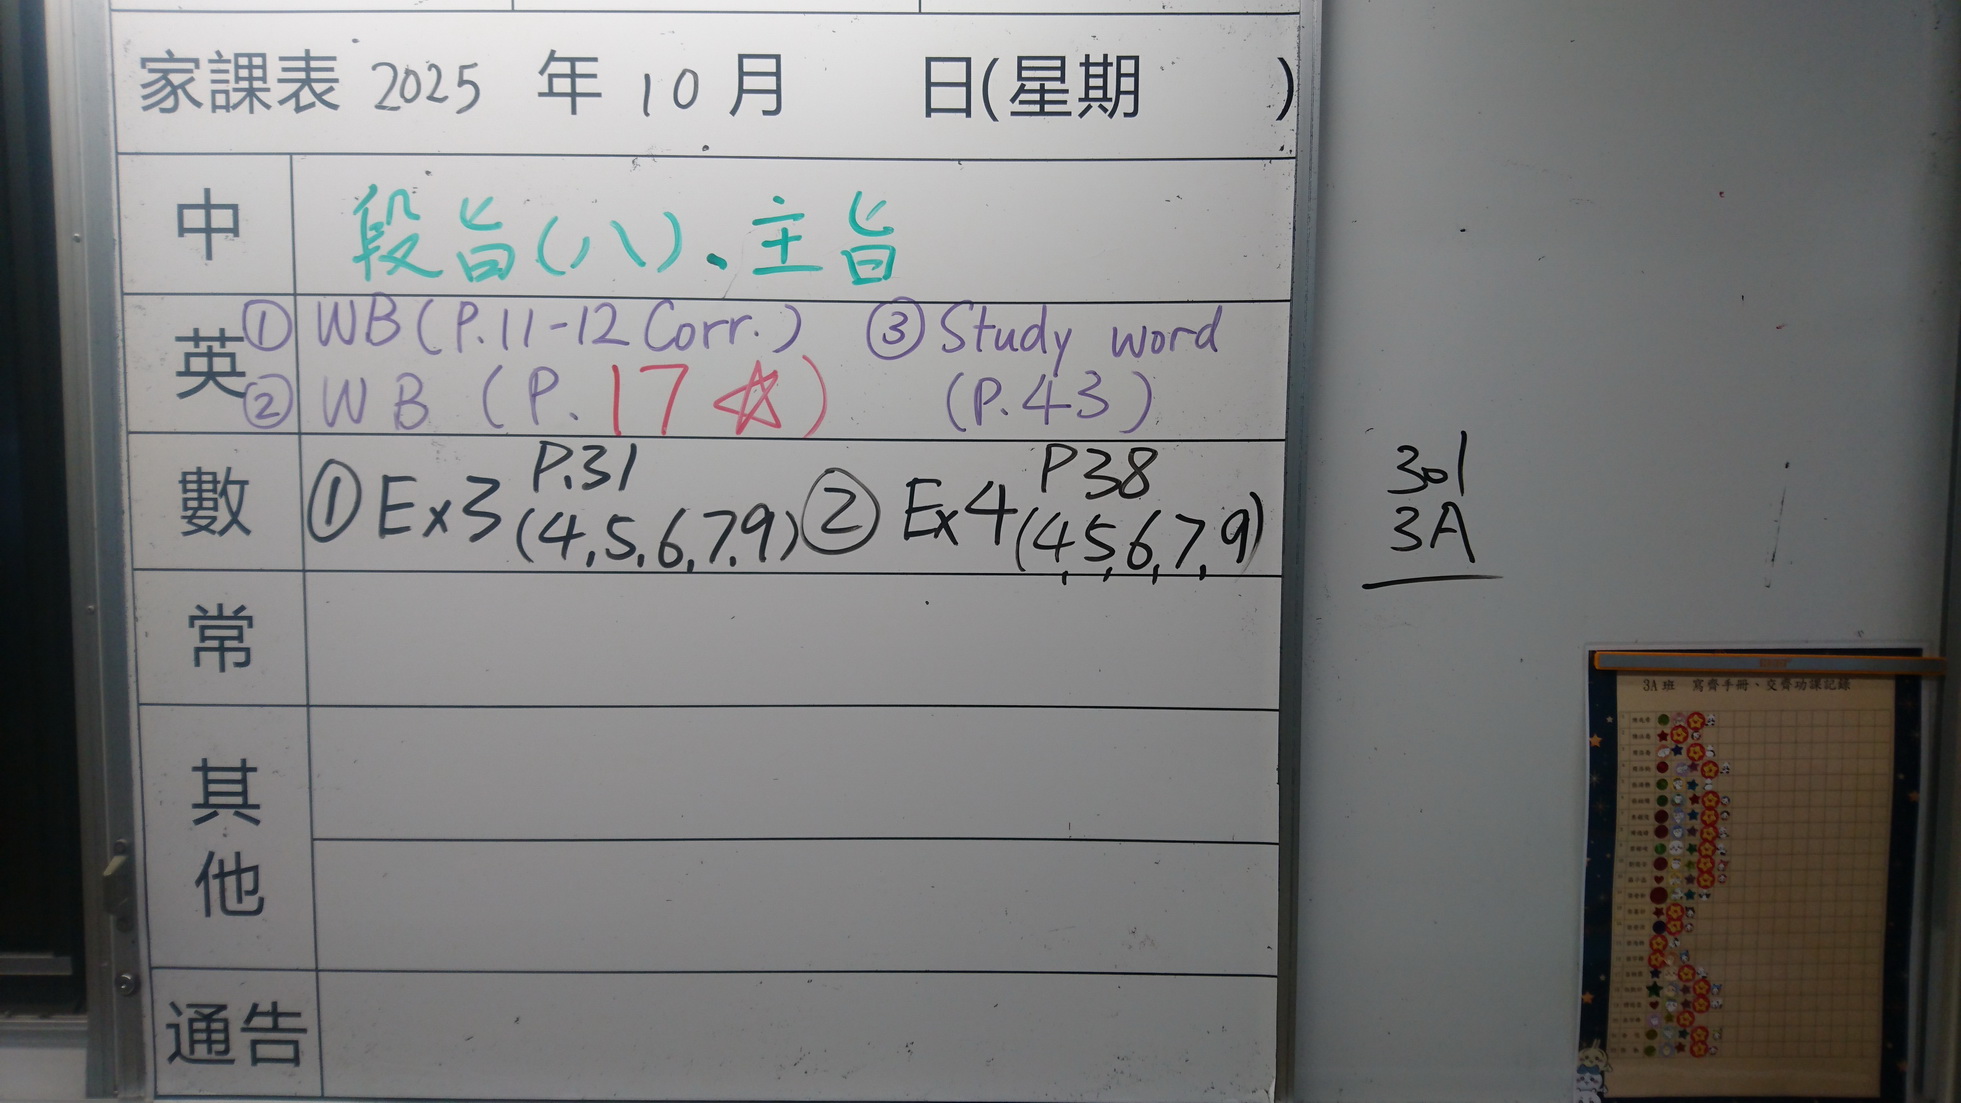 家課表 2025 年 10 月 日(星期 )
中 段旨(八)、主旨
英 ① WB (P.11-12 Corr.) ③ Study word
② WB (P. 17 ☆) (P.43)
數 ① Ex3 P.31 (4,5,6,7,9) ② Ex4 P38 (4,5,6,7,9)
常
其他
通告
301
3A
3A班 寫齊手冊、交齊功課記錄